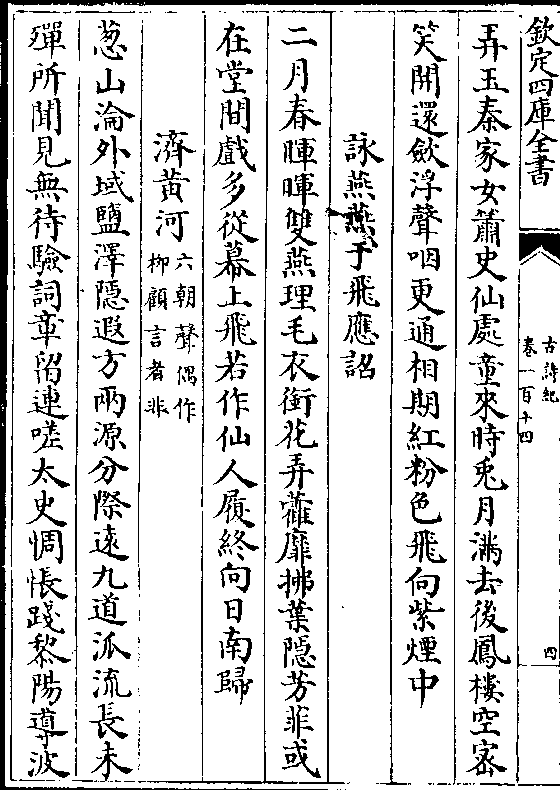 欽定四庫全書
古詩紀
卷一百十四
四
弄玉秦家女簫史仙處童來時兎月滿去後鳳樓空密
笑開還斂浮聲咽更通相期紅粉色飛向紫煙中
詠燕燕于飛應詔
二月春暉暉雙燕理毛衣銜花弄藿靡拂葉隠芳菲或
在堂間戲多從幕上飛若作仙人履終向日南歸
濟黄河
六朝聲偶作
柳顧言者非
葱山淪外域鹽澤隠遐方兩源分際逺九道派流長未
殫所聞見無待驗詞章留連嗟太史惆悵踐黎陽導波